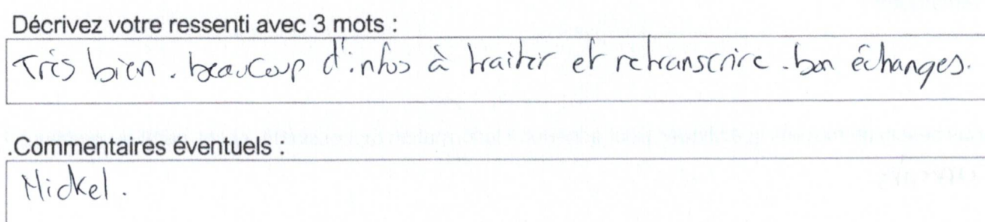 Décrivez votre ressenti avec 3 mots :
Très bien. beaucoup d'infos à traiter et retranscrire. bon échanges.
.Commentaires éventuels :
Nickel.